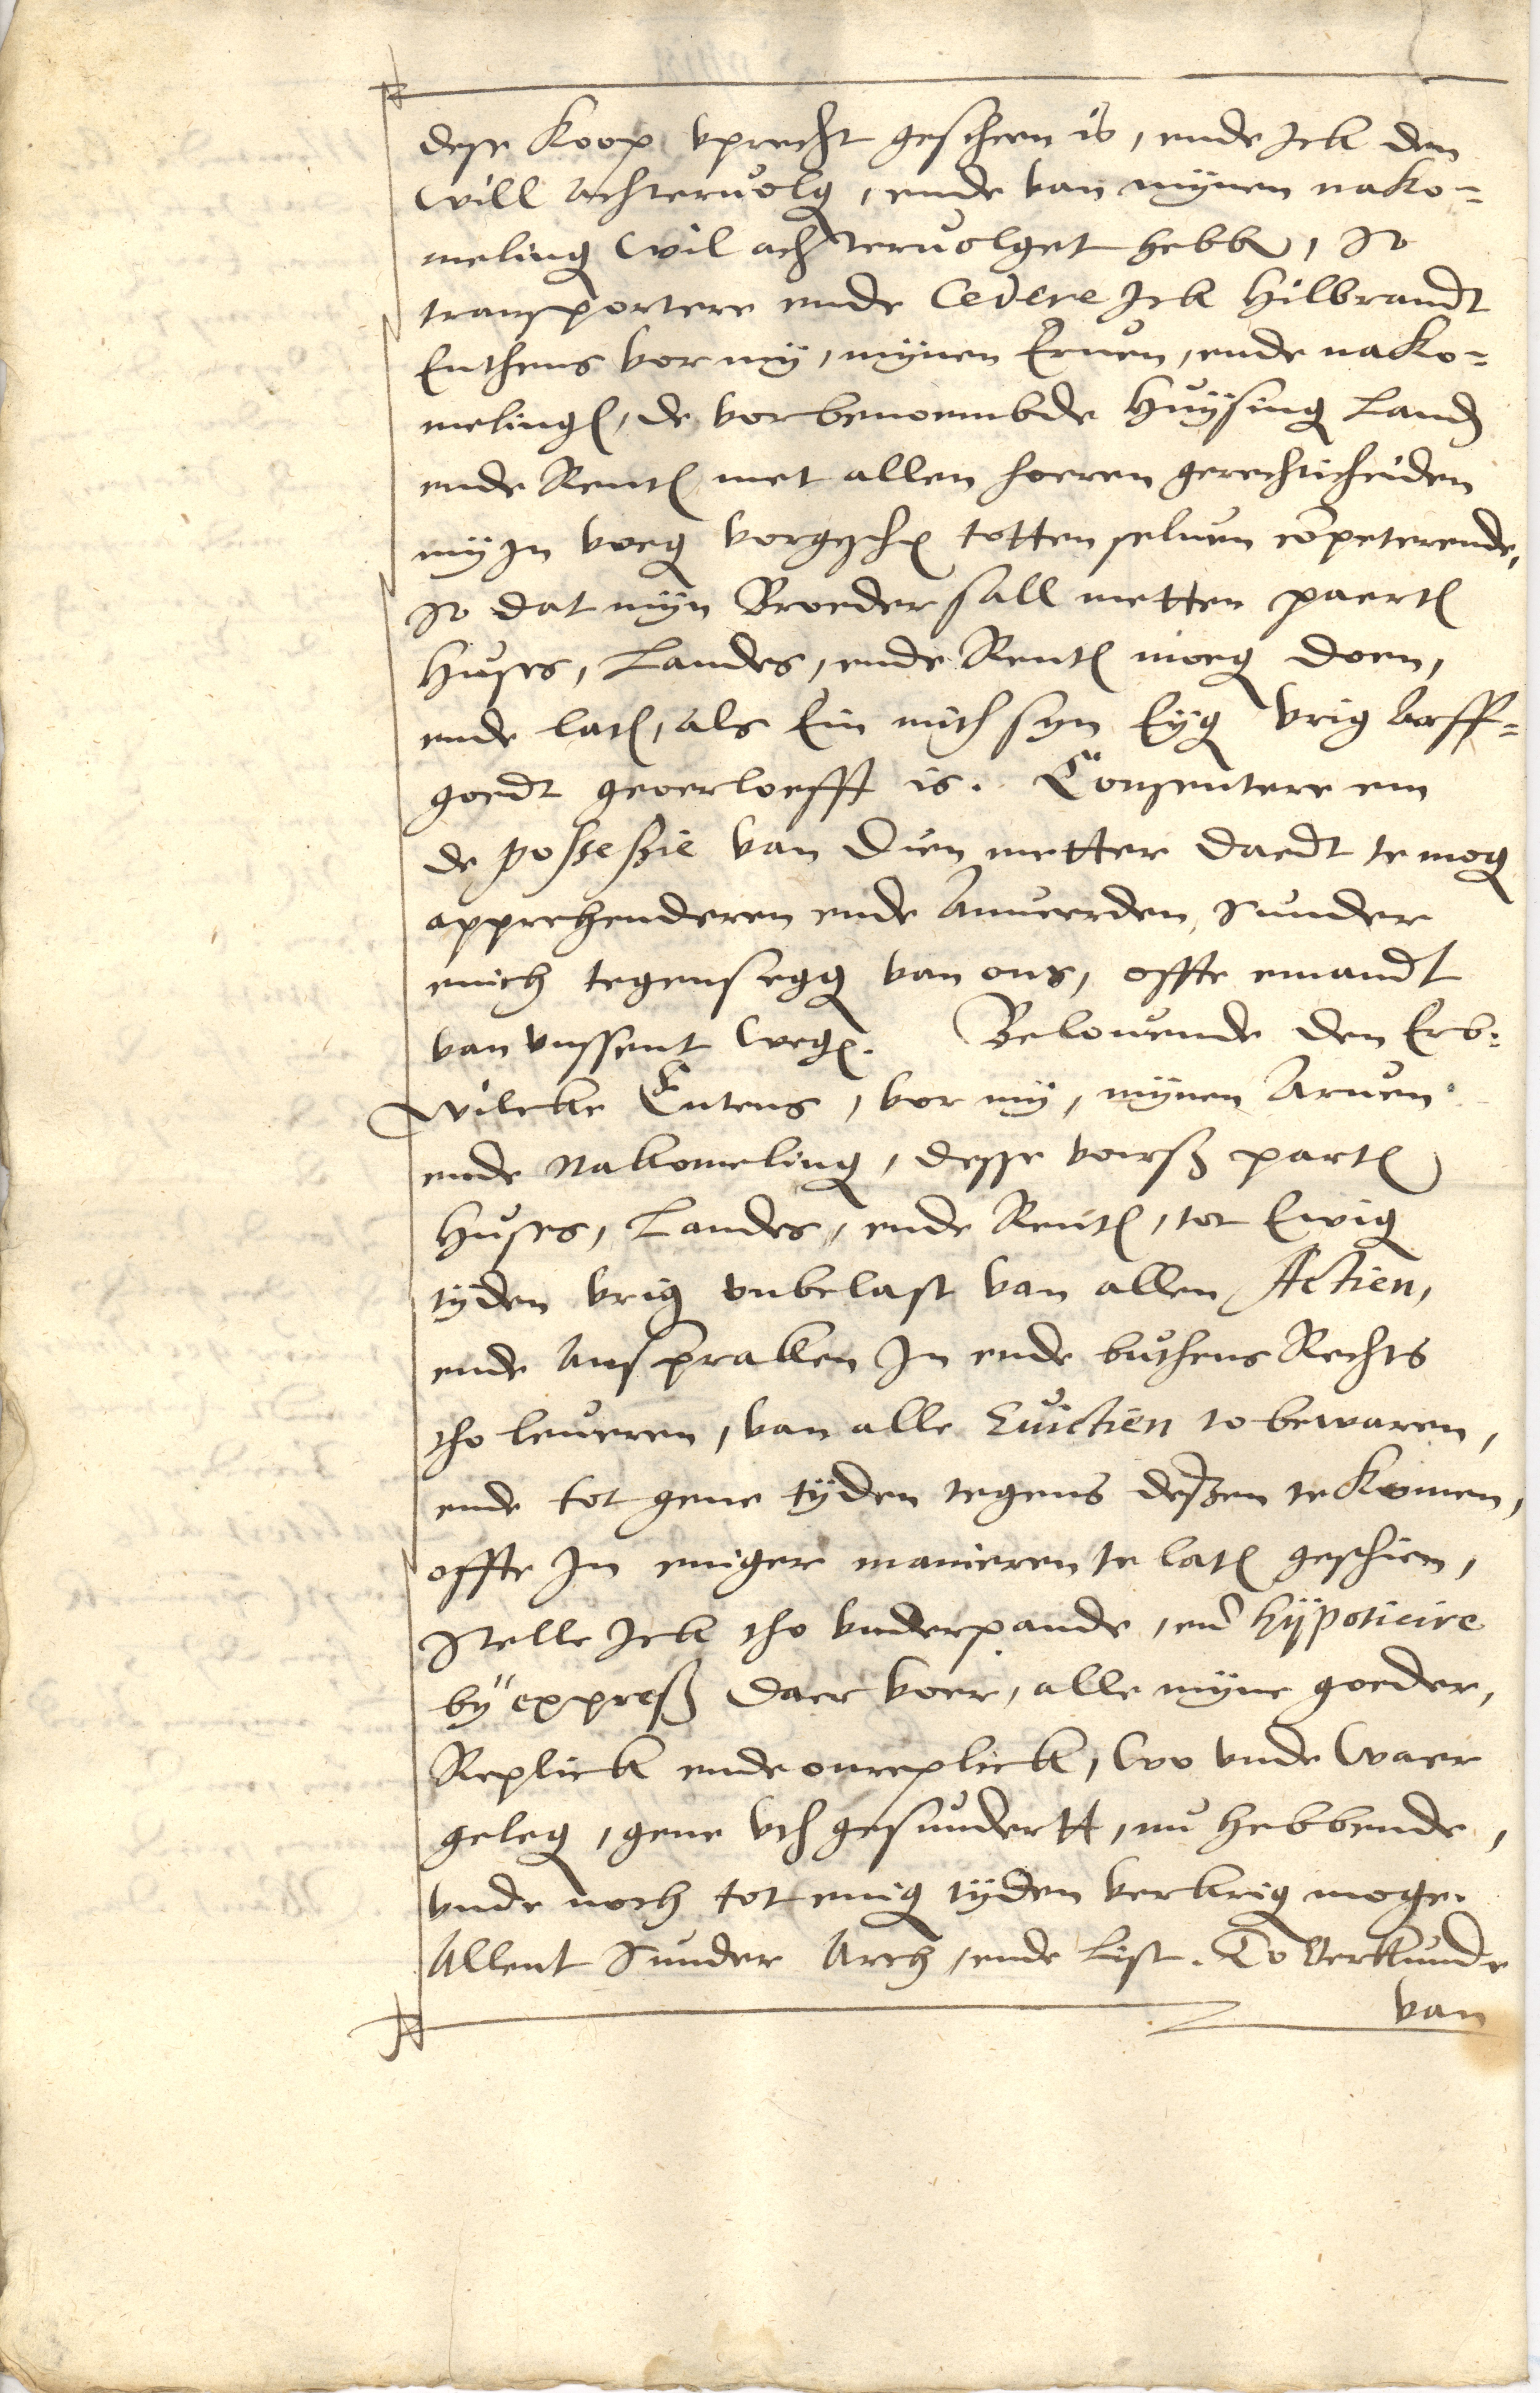 dese Koop vprecht gescheen is, ende Jck den
will achtervolg, ende van mynen nako=
meling wil achtervolget hebb, So
transportere ende Cedere Jck Hilbrandt
Enthens vor my, mynen Erven, ende nako=
meling, de vorbenoembde Huysing Land
ende Rent met allen hoeren gerechticheiden
my in voeg totten selven competerende,
So dat myn Broeder sall metten paert
Huses, Landes, ende Rent moeg doen,
ende lat, als Ein mith syn Eyg vrig Arff=
goedt georloefft is. Consentere em
de possessie van dien metter daedt te mog
apprehenderen ende Anverden, sunder
enich tegensegg van ons, offte emandt
van vnssent weg. Belovende den Erb:
Wilcke Entens, vor my, mynen Arven
ende Nakomeling, desse voirß part
Huses, Landes, ende Rent, tot Ewig
tyden vrig onbelast van allen Actien,
ende Anspraken Jn ende buthens Rechts
tho leveren, van alle Evictien to bewaren,
ende tot gene tyden tegens deszen te Komen,
offte Jn eniger manieren te lat geschien,
Stelle Jck tho vnderpande, end hÿpoticire
bÿ expreß daer voer, alle myne goeder,
Replick ende onreplick, wo vnde waer
geleg, gene vth gesundertt, nu hebbende,
vnde noch tot enig tyden verkrig moge.
Allent Sunder Arch, ende List. To Verkunde
van